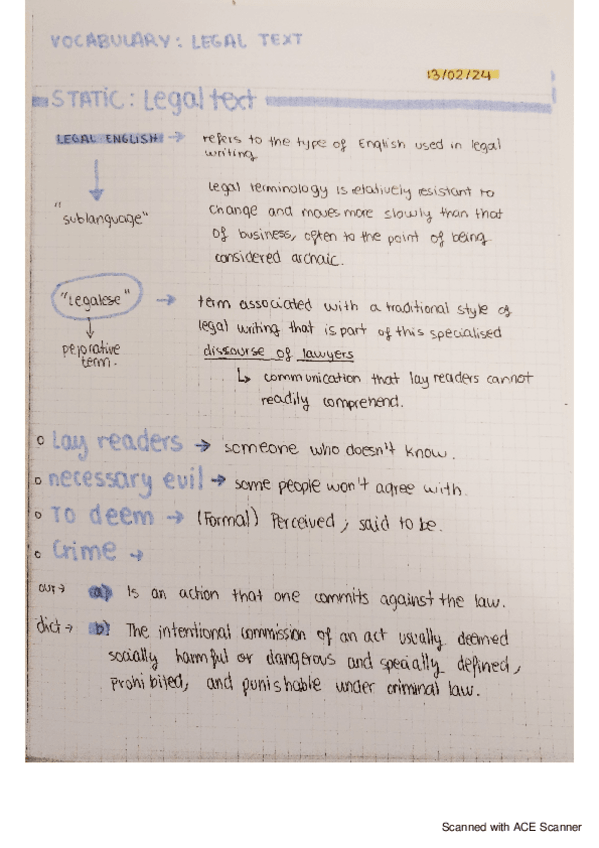 VOCABULARY: LEGAL TEXT
13/02/24
STATIC: Legal text
LEGAL ENGLISH → refers to the type of English used in legal
writing
"sublanguage"
legal terminology is relatively resistant to
change and moves more slowly than that
of business, often to the point of being
considered archaic.
"Legalese" → term associated with a traditional style of
legal writing that is part of this specialised
dissourse of lawyers
pejorative
term.
↳ communication that lay readers cannot
readily comprehend.
o Lay readers → someone who doesn't know.
o necessary evil → some people won't agree with.
o To deem → (Formal) Perceived; said to be.
o Crime →
our → a) Is an action that one commits against the law.
dict → b) The intentional commission of an act usually deemed
socially harmful or dangerous and specially defined,
prohibited, and punishable under criminal law.
Scanned with ACE Scanner